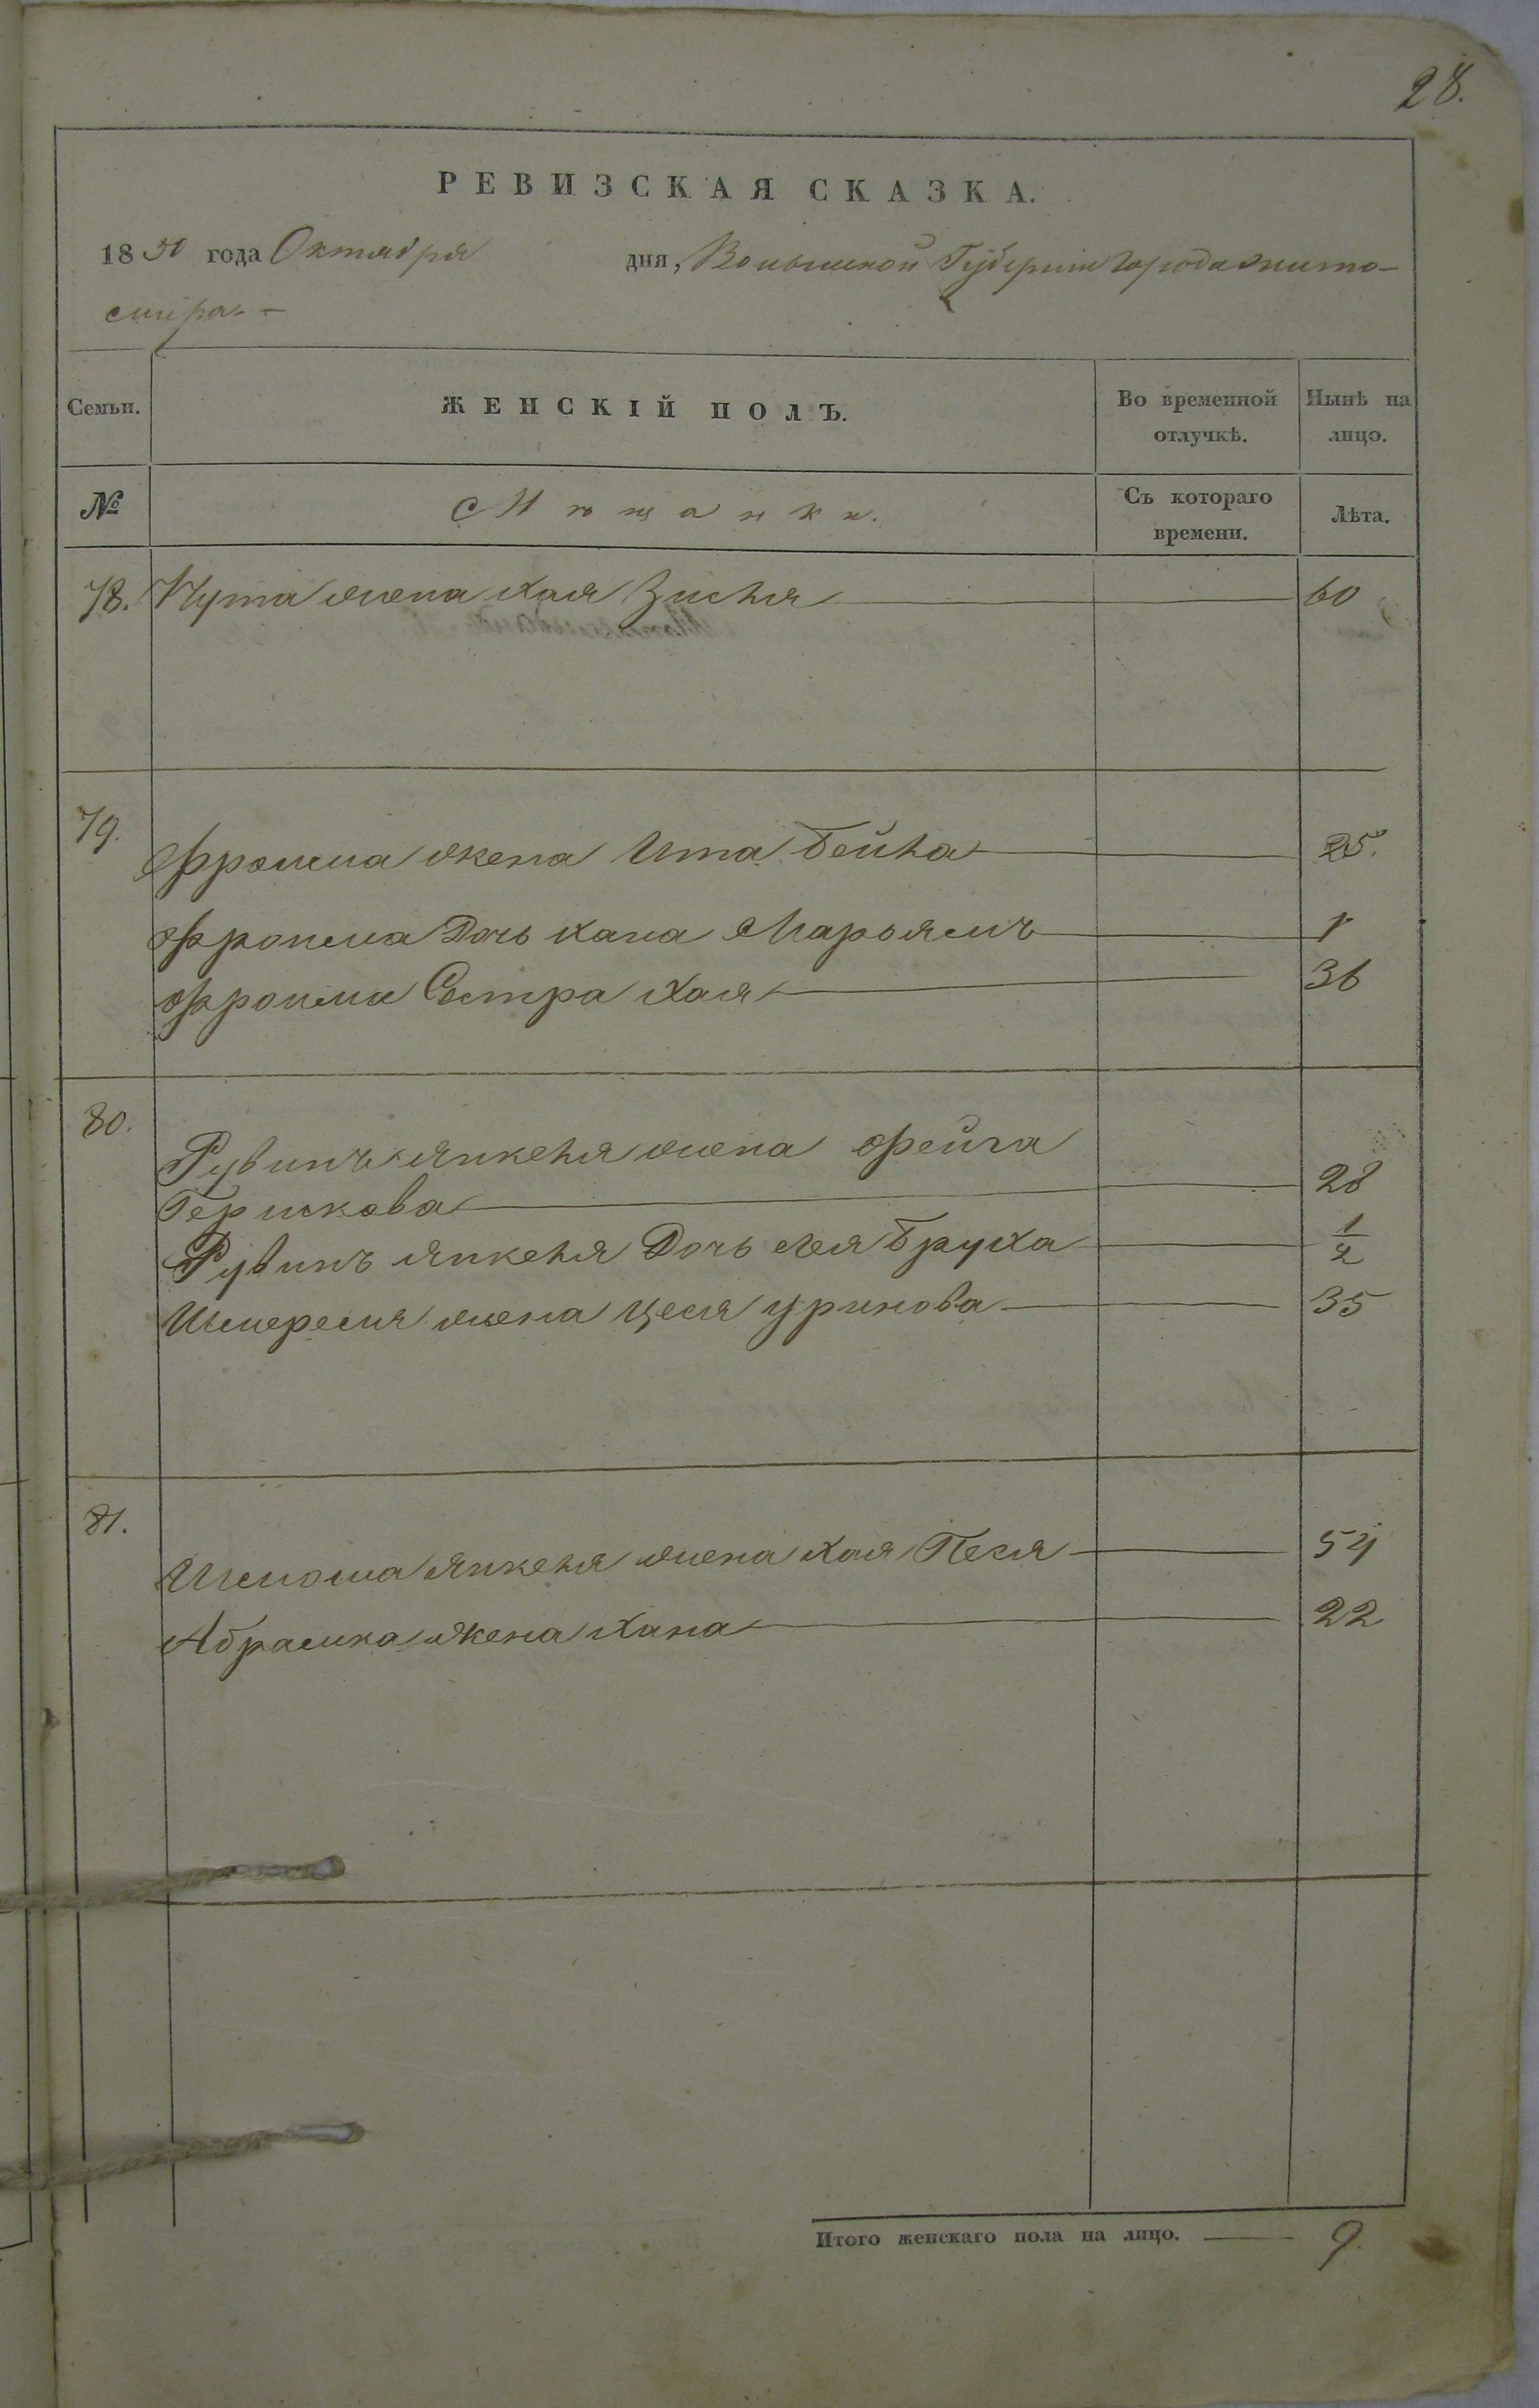 28.
РЕВИЗСКАЯ СКАЗКА.
1850 года Октября дня, Волынской Губернии города Жито-
мира. —
Семьи. ЖЕНСКІЙ ПОЛЪ. Во временной отлучкѣ. Нынѣ на лицо.
№ Мѣщанки. Съ котораго времени. Лѣта.
78. жена Хая Зисля 60
79.
Фроима жена Ита Бейла 25.
Фроима Дочь Хана Марьямъ 1
Фроима Сестра Хая 36
80.
Рувинъ Янкеля жена Фейга
Гершкова 28
Рувинъ Янкеля Дочь Лея Бруха 1/2
жена Цеся 35
81.
Шлиома Янкеля жена Хая Песя 54
Абрамка жена Хана 22
Итого женскаго пола на лицо. 9